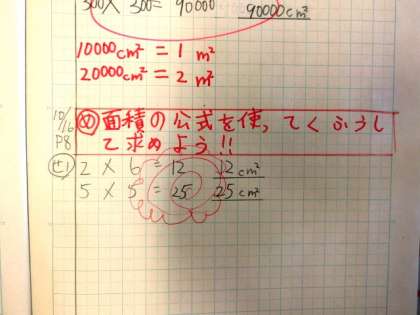 300 × 300 = 90000 90000cm²
10000cm² = 1 m²
20000cm² = 2 m²
10/16
P8
め 面積の公式を使ってくふうし
て求めよう!!
2 × 6 = 12 12cm²
5 × 5 = 25 25cm²